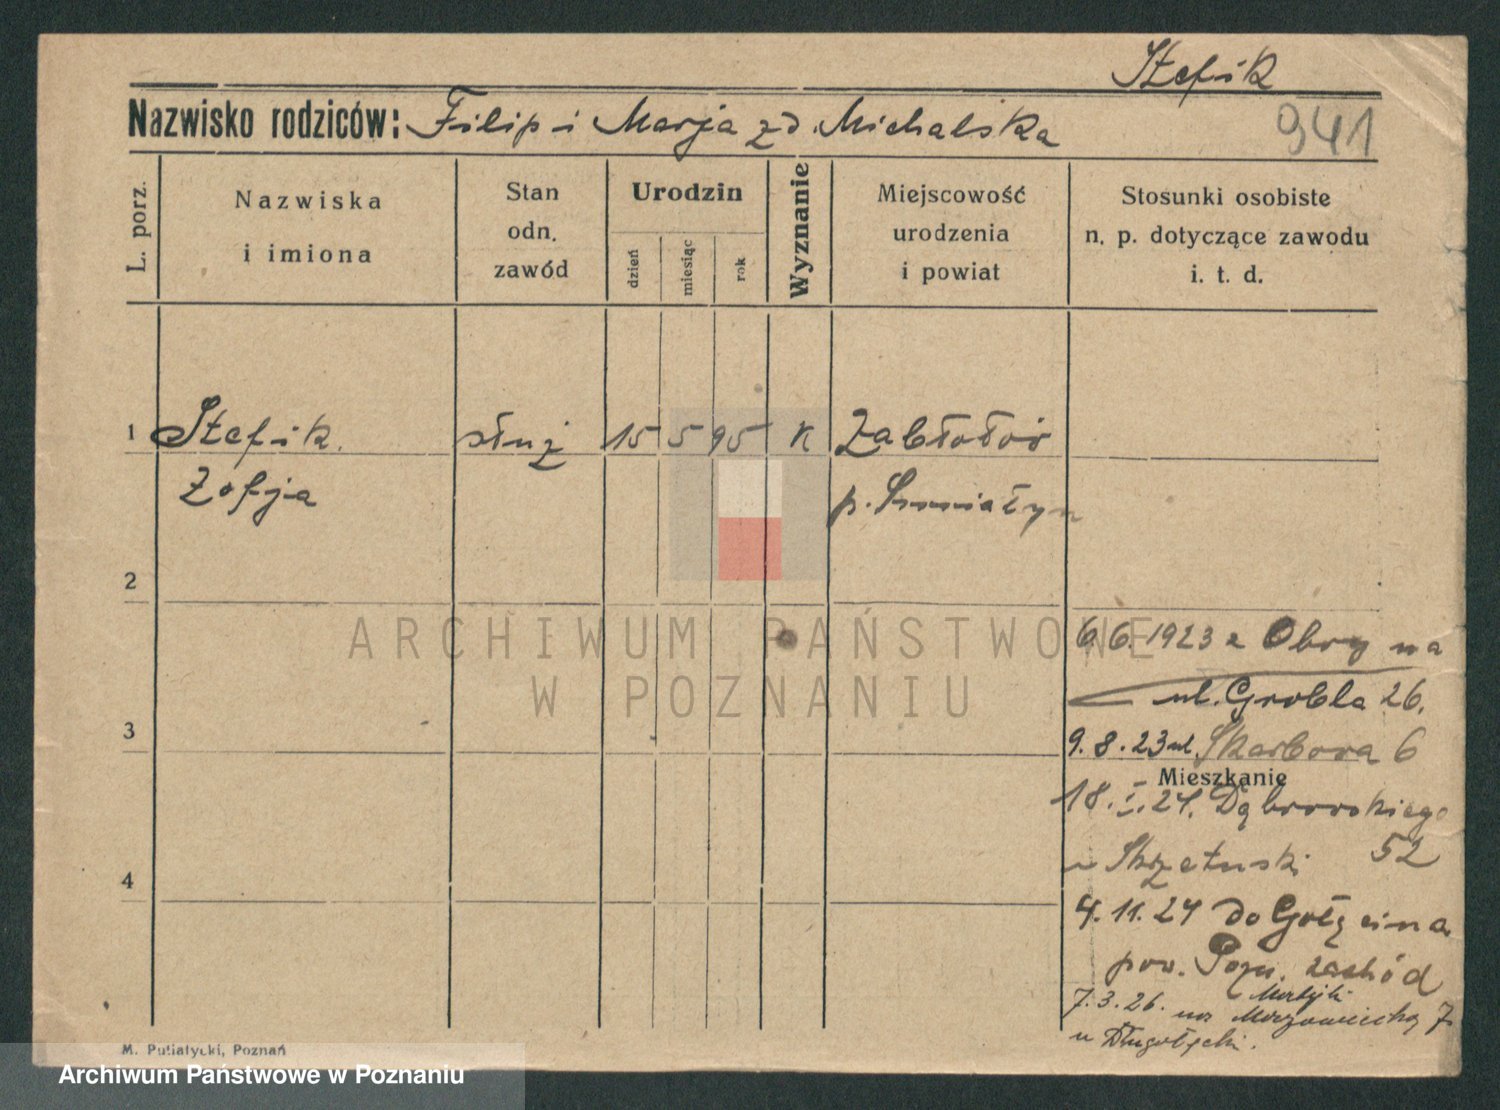 Stefik
Nazwisko rodziców: Filip i Marja zd. Michalska
941
L. porz.
Nazwiska
i imiona
Stan
odn.
zawód
Urodzin
dzień
miesiąc
rok
Wyznanie
Miejscowość
urodzenia
i powiat
Stosunki osobiste
n. p. dotyczące zawodu
i. t. d.
1 Stefik służ 15 5 95 K Zabłotów
Zofja p. Śniatyn
2
6 6. 1923 z Obry na
ul. Grobla 26.
3
9. 8. 23 ul. Skarbowa 6
Mieszkanie
18. I. 24. Dąbrowskiego
u Skrzetuski 52
4
4. 11. 24 do Golęcina
pow. Pozn. zachód
7. 3. 26. na Mazowiecką 7
u Długołęcki.
M. Putiatycki, Poznań
ARCHIWUM PAŃSTWOWE
W POZNANIU
Archiwum Państwowe w Poznaniu